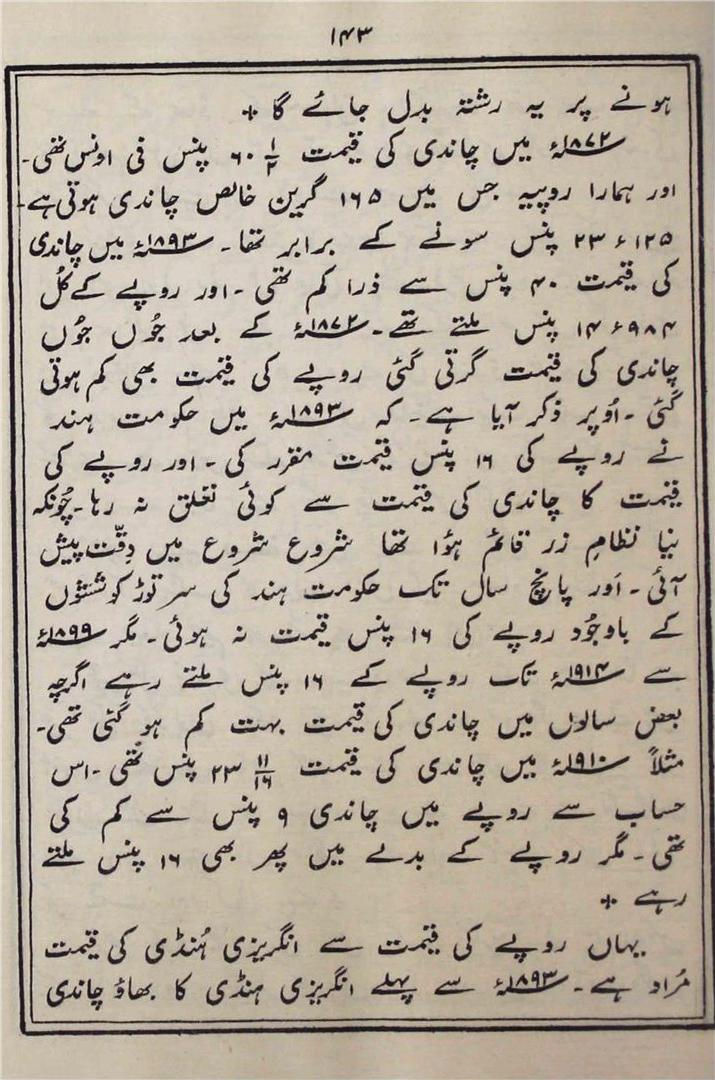 ۱۴۳
ہونے پر یہ رشتہ بدل جائے گا +
۱۸۷۲ء میں چاندی کی قیمت ۶۰ ۱/۲ پنس فی اونس تھی۔
اور ہمارا روپیہ جس میں ۱۶۵ گرین خالص چاندی ہوتی ہے۔
۲۳ء۱۲۵ پنس سونے کے برابر تھا۔ ۱۸۹۳ء میں چاندی
کی قیمت ۴۰ پنس سے ذرا کم تھی۔ اور روپے کے کُل
۱۴ء۹۸۴ پنس ملتے تھے۔ ۱۸۷۲ء کے بعد جُوں جُوں
چاندی کی قیمت گرتی گئی روپے کی قیمت بھی کم ہوتی
گئی۔ اُوپر ذکر آیا ہے۔ کہ ۱۸۹۳ء میں حکومت ہند
نے روپے کی ۱۶ پنس قیمت مقرر کی۔ اور روپے کی
قیمت کا چاندی کی قیمت سے کوئی تعلق نہ رہا۔ چُونکہ
نیا نظامِ زر قائم ہؤا تھا شروع شروع میں دِقّت پیش
آئی۔ اَور پانچ سال تک حکومت ہند کی سر توڑ کوششوں
کے باوجُود روپے کی ۱۶ پنس قیمت نہ ہوئی۔ مگر ۱۸۹۹ء
سے ۱۹۱۴ء تک روپے کے ۱۶ پنس ملتے رہے اگرچہ
بعض سالوں میں چاندی کی قیمت بہت کم ہو گئی تھی۔
مثلاً ۱۹۱۰ء میں چاندی کی قیمت ۲۳ ۱۱/۱۶ پنس تھی۔ اس
حساب سے روپے میں چاندی ۹ پنس سے کم کی
تھی۔ مگر روپے کے بدلے میں پھر بھی ۱۶ پنس ملتے
رہے +
یہاں روپے کی قیمت سے انگریزی ہُنڈی کی قیمت
مُراد ہے۔ ۱۸۹۳ء سے پہلے انگریزی ہنڈی کا بھاؤ چاندی